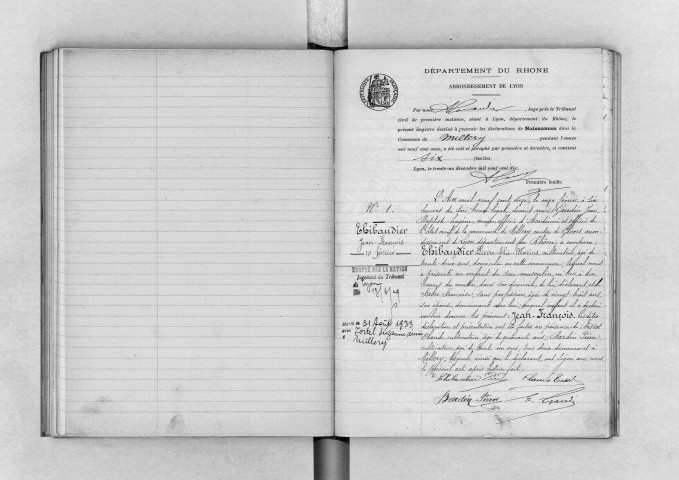 DÉPARTEMENT DU RHONE
ARRONDISSEMENT DE LYON
Par nous, Juge près le Tribunal
civil de première instance, séant à Lyon, département du Rhône, le
présent Registre destiné à recevoir les déclarations de Naissances dans la
Commune de Millery pendant l'année
mil neuf cent onze, a été coté et paraphé par première et dernière, et contient
six feuilles.
Lyon, le trente-un décembre mil neuf cent dix.
Première feuille
N° 1.
Thibaudier
Jean François
10 février
ADOPTÉ PAR LA NATION
Jugement du Tribunal
de Lyon
Marié le 31 Août 1933
avec Suzanne
à Millery
L'An mil neuf cent onze, le onze février, à
heures du soir, devant nous Jean
Baptiste officier d'Académie et officier de
l'Etat civil de la commune de Millery, canton de Givors, arron-
dissement de Lyon, département du Rhône, a comparu:
Thibaudier Pierre Marius, cultivateur, âgé de
trente deux ans, domicilié en cette commune, lequel nous
a présenté un enfant du sexe masculin, né hier à dix
heures du matin, dans son domicile, de lui déclarant, et de
Françoise, sans profession, âgée de vingt huit ans,
son épouse, demeurant avec lui; auquel enfant il a déclaré
vouloir donner les prénoms: Jean-François. Lesdites
déclaration et présentation ont été faites en présence de
Claude, cultivateur, âgé de quarante ans;
cultivateur, âgé de trente un ans; tous deux demeurant à
Millery; lesquels ainsi que le déclarant ont signé avec nous
le présent acte après lecture faite.
Thibaudier